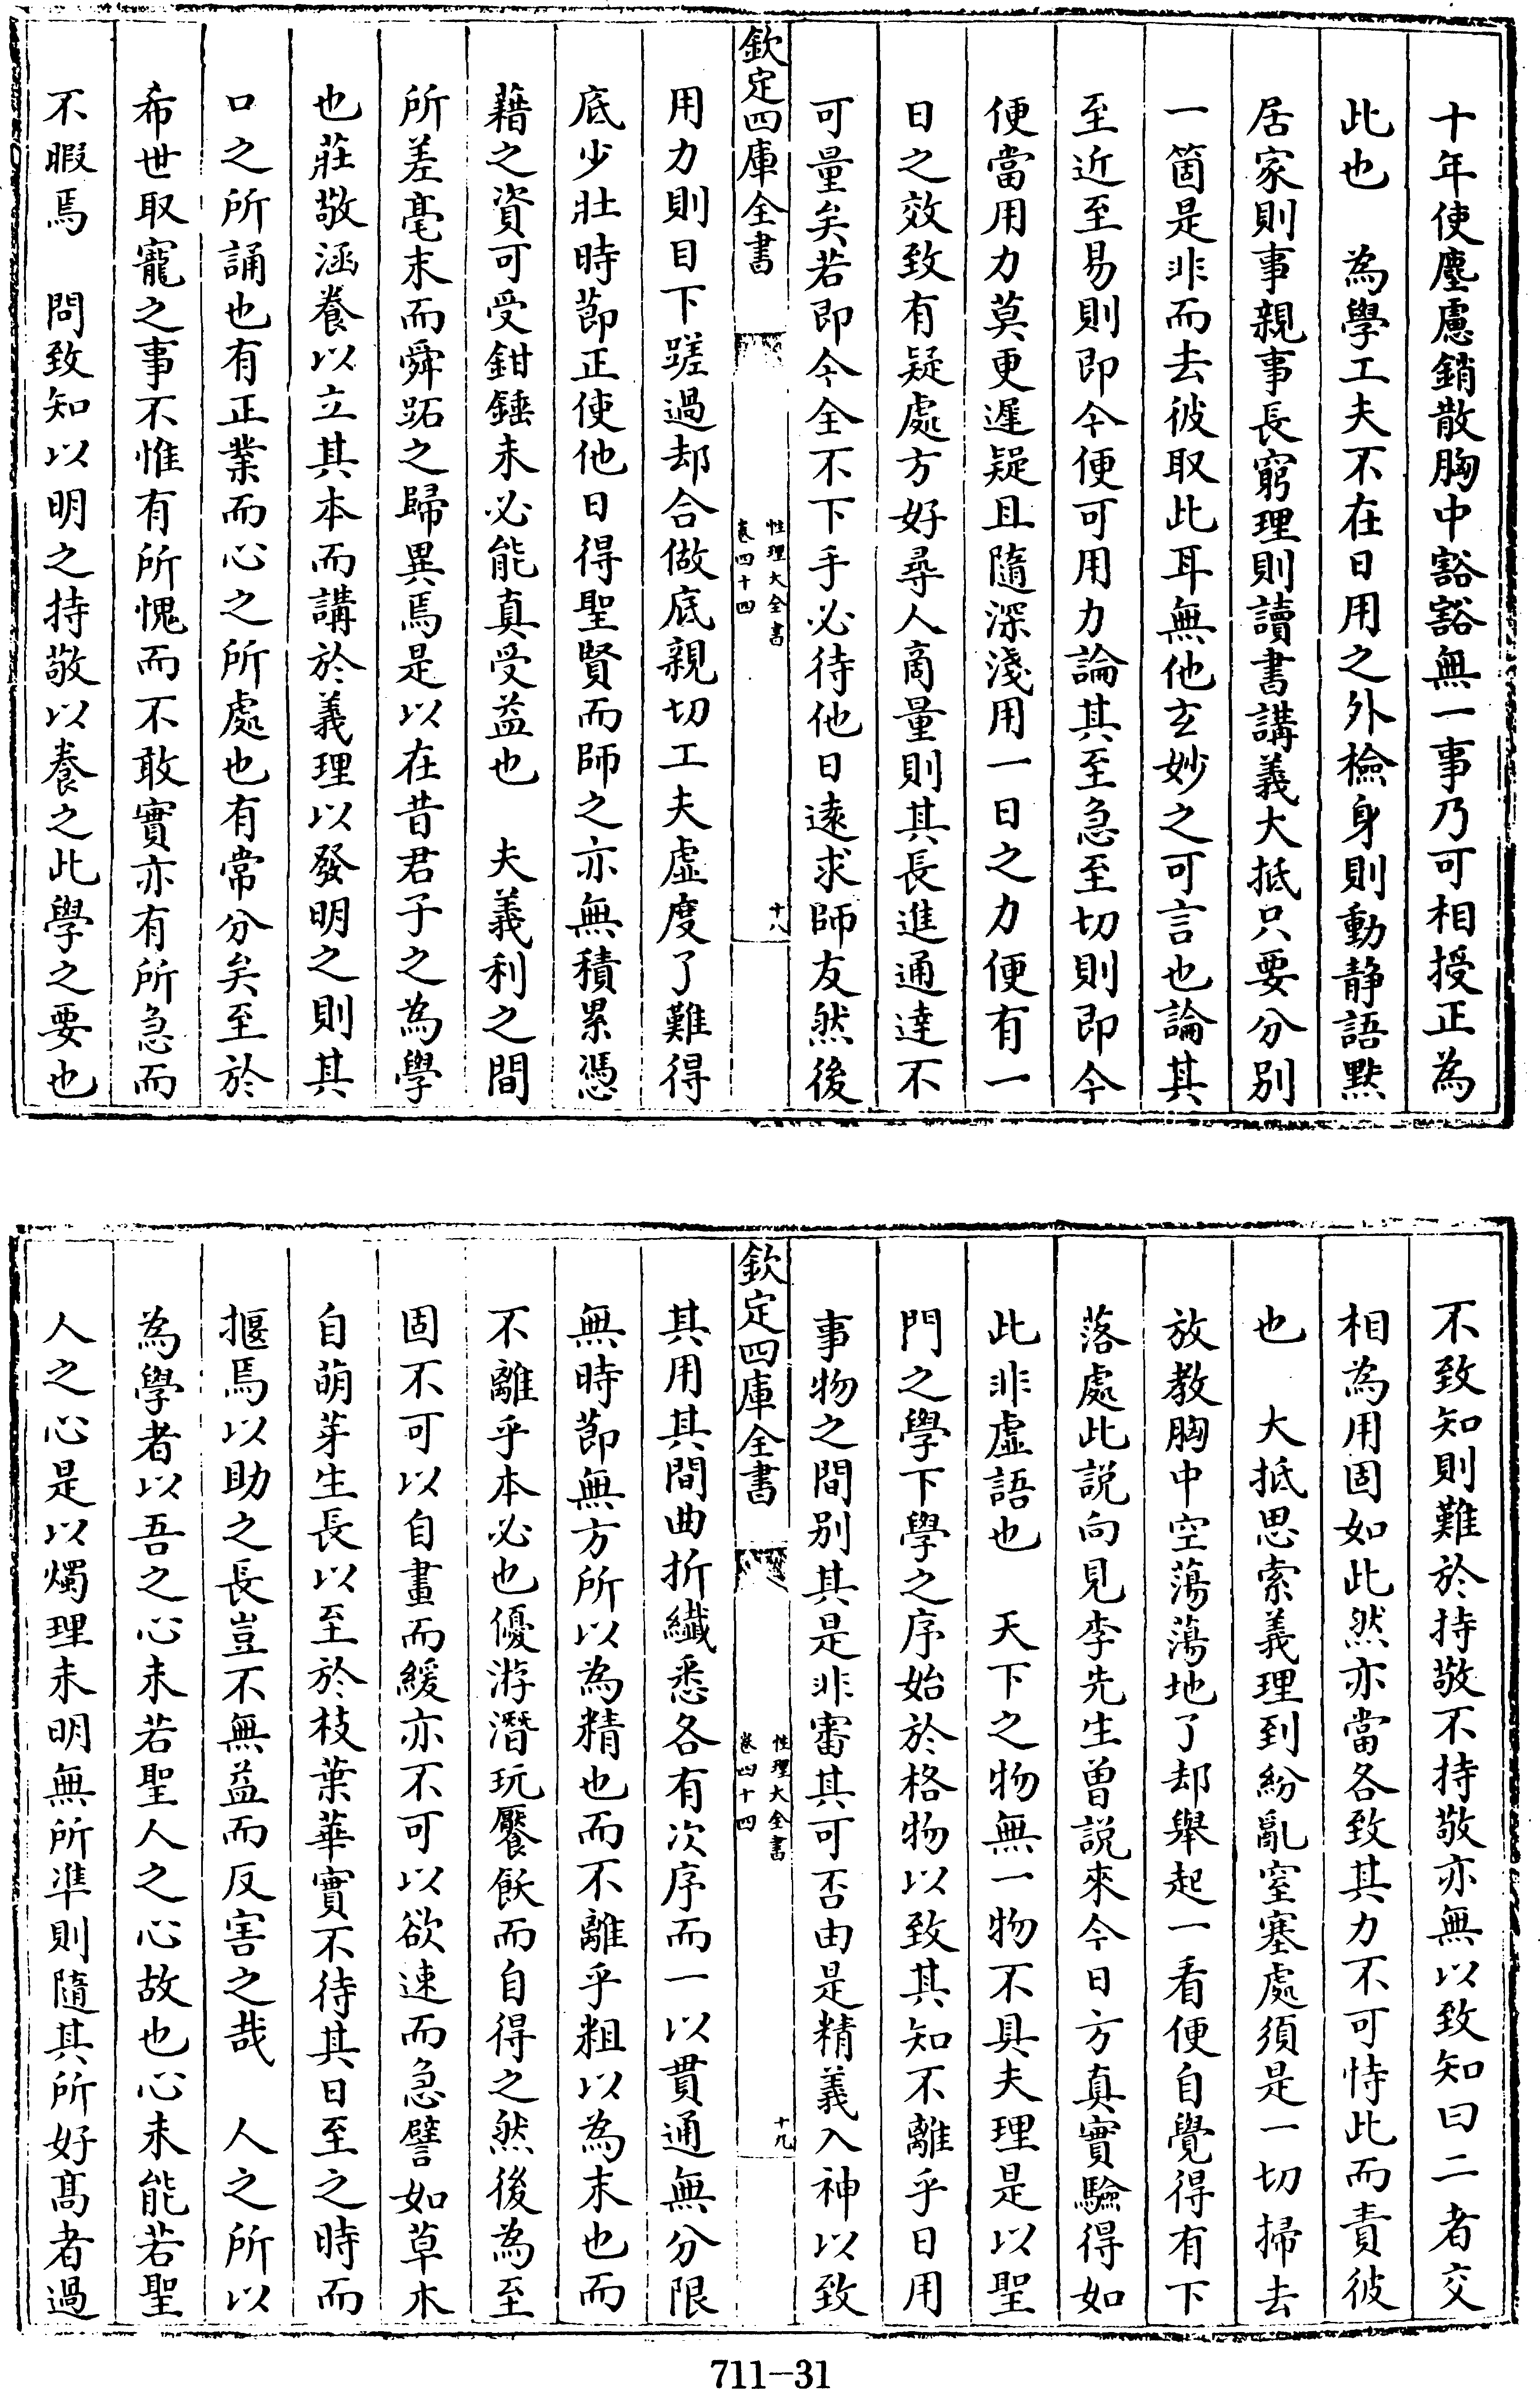 十年使塵慮銷散胸中豁豁無一事乃可相授正為
此也　為學工夫不在日用之外檢身則動静語黙
居家則事親事長窮理則讀書講義大抵只要分別
一箇是非而去彼取此耳無他玄妙之可言也論其
至近至易則即今便可用力論其至急至切則即今
便當用力莫更遲疑且隨深淺用一日之力便有一
日之效致有疑處方好尋人商量則其長進通達不
可量矣若即今全不下手必待他日遠求師友然後
欽定四庫全書
性理大全書
卷四十四
十八
用力則目下蹉過却合做底親切工夫虛度了難得
底少壯時節正使他日得聖賢而師之亦無積累憑
藉之資可受鉗錘未必能真受益也　夫義利之間
所差毫末而舜跖之歸異焉是以在昔君子之為學
也莊敬涵養以立其本而講於義理以發明之則其
口之所誦也有正業而心之所處也有常分矣至於
希世取寵之事不惟有所愧而不敢實亦有所急而
不暇焉　問致知以明之持敬以養之此學之要也
不致知則難於持敬不持敬亦無以致知曰二者交
相為用固如此然亦當各致其力不可恃此而責彼
也　大抵思索義理到紛亂窒塞處須是一切掃去
放教胸中空蕩蕩地了却舉起一看便自覺得有下
落處此説向見李先生曽説來今日方真實驗得如
此非虛語也　天下之物無一物不具夫理是以聖
門之學下學之序始於格物以致其知不離乎日用
事物之間別其是非審其可否由是精義入神以致
欽定四庫全書
性理大全書
卷四十四
十九
其用其間曲折纎悉各有次序而一以貫通無分限
無時節無方所以為精也而不離乎粗以為末也而
不離乎本必也優游潛玩饜飫而自得之然後為至
固不可以自畫而緩亦不可以欲速而急譬如草木
自萌芽生長以至於枝葉華實不待其日至之時而
揠焉以助之長豈不無益而反害之哉　人之所以
為學者以吾之心未若聖人之心故也心未能若聖
人之心是以燭理未明無所凖則隨其所好髙者過
711-31